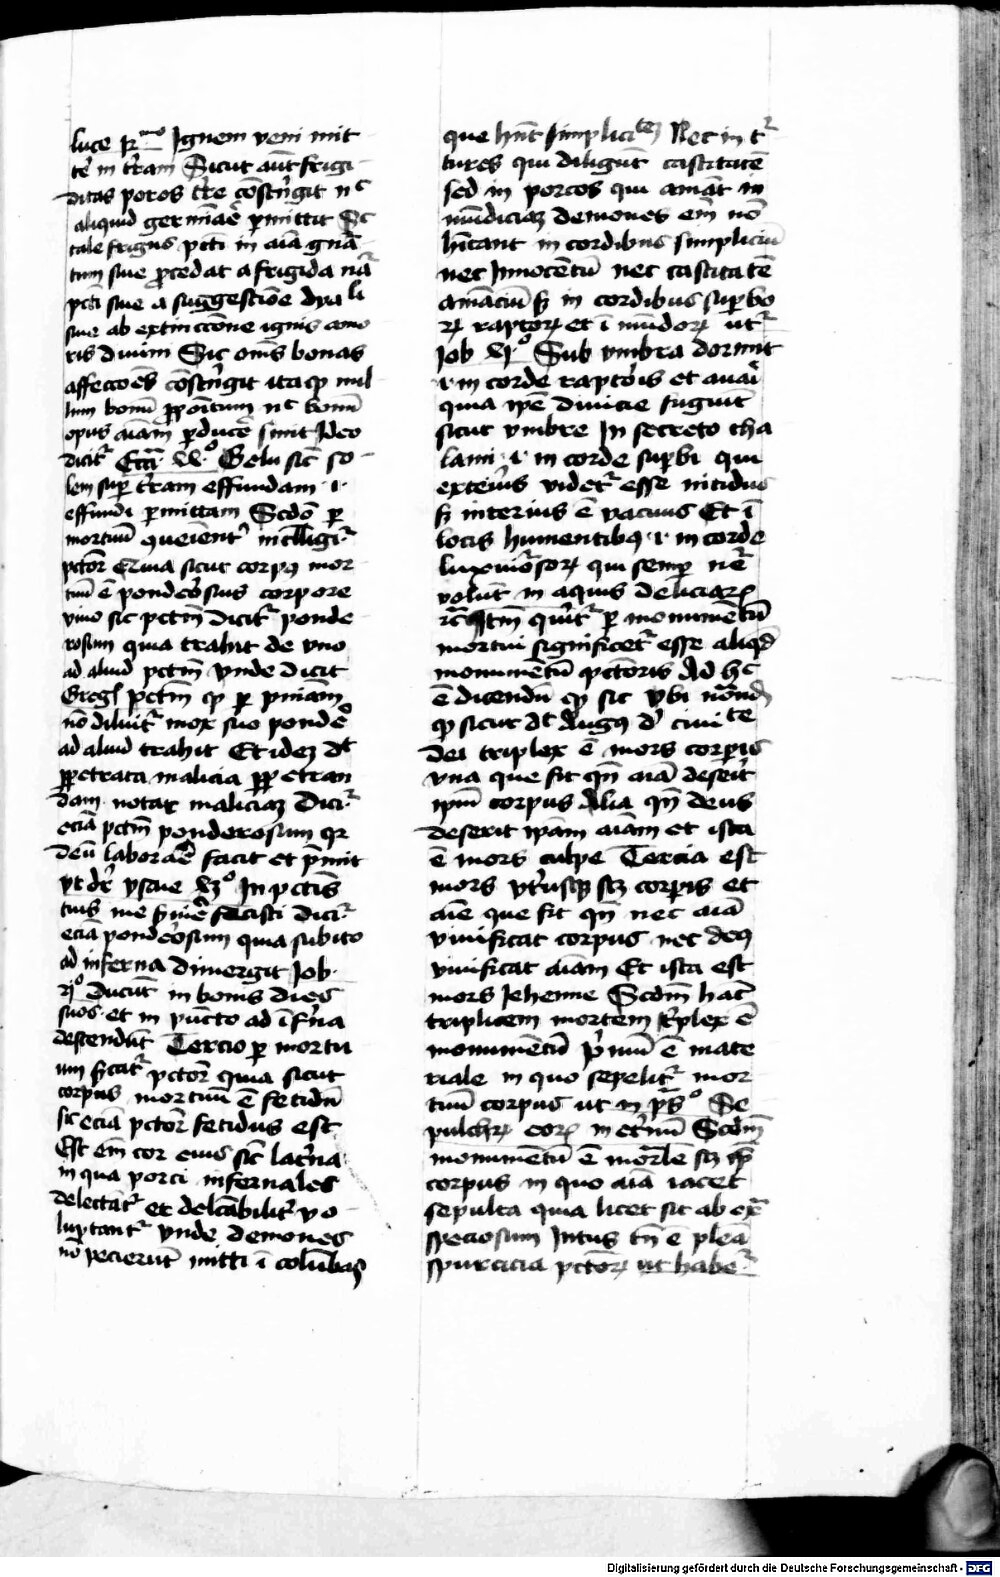 luce xii^mo Ignem veni mit
te͛ in t͛ram Sicut aut̄ frigi
ditas poros t͛re co̅st͛ngit n^c
aliquid germi̅are̅ p͛mittit Sic
tale frigus pcti in ai̅a gn̅a
tum siue p͛cedat a frigida na̅
pcti siue a suggestio̅e dya^li
siue ab extinccio̅e ignis amo
ris diuini Sic om̅s bonas
affeccio̅es co̅st͛ngit ita qp nul
lum bonu̅ p͛positum n^c bonu̅
opus ai̅am p͛duce͛ sinit Ideo
dicit͛ Gelu sic̅ so
lem sup͛ t͛ram effundam ·i·
effundi p͛mittam Scdo̅ p͛
mortuu̅ intelligit͛
pctor̅ sicut corpus mor
tuu̅ e̅ pondero͛sius corpore
viuo sic pctm̅ dicit͛ ponde
rosum quia trahit de vno
ad aliud pctm̅ vnde dicit
Greg͛ pctm̅ qp p͛ pnia̅m
no̅ diluit͛ mox suo ponde͛
ad aliud trahit Et idez d^t
p͛petrata malicia p͛petran
dam notat maliciaz Dicit͛
ecia̅ pctm̅ ponderosum qr
deu̅ laborare̅ facit et p͛mit
vt dr͛ ysaie In pctis̅
tuis me s͛uire̅ fecisti dicit͛
ecia̅ pondero͛sum quia subito
ad inferna dimergit Job
xxi^o Ducu̅t in bonis dies
suos et in pu̅cto ad i̅f͛na
descendu̅t Tercio p͛ mortu
um s͛cat͛ pctor̅ quia sicut
corpus mortuu̅ e̅ fetidu̅
sic ecia̅ pctor̅ fetidus est
Est em̅ cor eius sic̅ lat͛na
in qua porci infernales
delectant͛ et delectabilit͛ vo
luptant͛ vnde demones
no̅ pecieru̅t mitti i̅ colu̅bas
que hn̅t simplici^tez Nec in t͛
tures qui diligu̅t castitate̅
sed in porcos qui ama̅t in
mu̅diciaz demones em̅ no̅
h͛itant in cordibus simpliciu̅
nec Innocentu̅ nec castitate̅
ama̅ciu̅ sz in cordibus sup͛bo
rum raptorum et i̅mu̅dorum ut͛
Job Sub vmbra dormit
·i· in corde raptor͛is et auari͛
quia ip̅e diuicie fugiu̅t
sicut vmbre In secreto cha
lami ·i· in corde sup͛bi qui
exte͛ius videt͛ esse nitidus
sz interius e̅ vacuus Et i̅
locis humentibus ·i· in corde
luxurio͛sorum qui semp͛ na͛re
volu̅t in aquis deliciarum
Ite̅m querit͛ p͛ monumentu̅
mortui significet͛ esse aliqd
monumentu̅ pctoris Ad h^c
e̅ dicendu̅ qp sic vbi nota͛nd
qp sicut d^t Augus d͛ ciui^te
dei triplex e̅ mors corp͛is
vna que fit qn̅ ai̅a deserit
ipm̅ corpus Alia qn̅ deus
deserit ip̅am ai̅am et ista
e̅ mors culpe Tercia est
mors vt͛iusqz scz corp͛is et
ai̅e que fit qn̅ nec ai̅a
viuificat corpus nec deus
viuificat ai̅am Et ista est
mors Jehenne Scdm̅ hanc̅
triplicem mortem t͛plex e̅
monumentu̅ p͛imu̅ e̅ mate
riale in quo sepelit͛ mor
tuu̅ corpus ut in ps̅^o Se
pulchrum eorum in et͛nu̅ Scdm̅
monumentu̅ e̅ mora͛le scz ip̅m
corpus in quo ai̅a iacet
sepulta quia licet sit ab ext͛a
speciosum Intus tn̅ e̅ plena̅
spurcicia pctorum ut habet͛